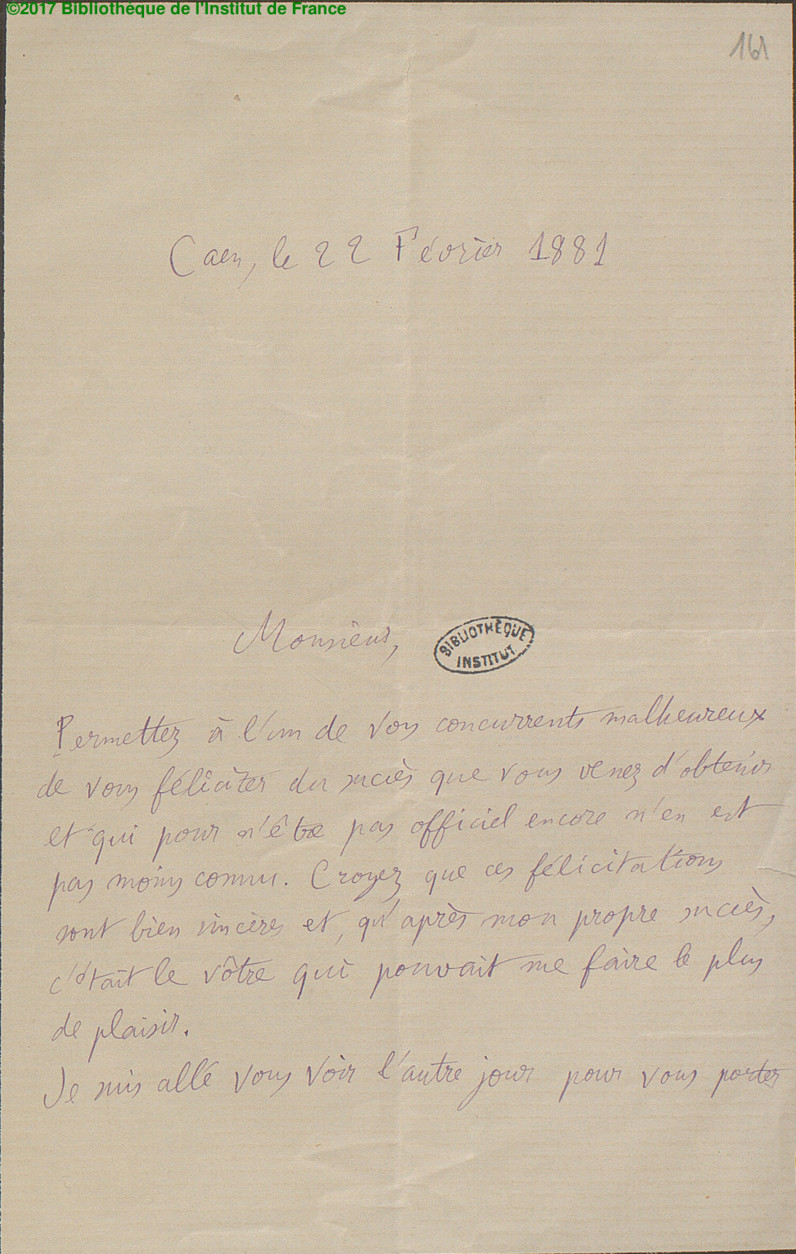 ©2017 Bibliothèque de l'Institut de France
161
Caen, le 22 Février 1881
Monsieur,
BIBLIOTHÈQUE
INSTITUT
Permettez à l'un de vos concurrents malheureux
de vous féliciter du succès que vous venez d'obtenir
et qui pour n'être pas officiel encore n'en est
pas moins connu. Croyez que ces félicitations
sont bien sincères et, qu'après mon propre succès,
c'était le vôtre qui pouvait me faire le plus
de plaisir.
Je suis allé vous voir l'autre jour pour vous porter